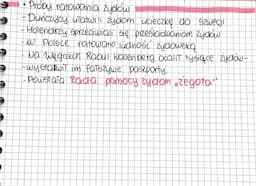 • Próby ratowania żydów
- Duńczycy ułatwili żydom ucieczkę do Szwecji
- Holendrzy sprzeciwiali się prześladowaniom żydów
- W Polsce ratowano ludność żydowską
- Na Węgrzech Raoul Wallenberg ocalił tysiące żydów-
- wystawił im fałszywe paszporty.
- Powstała Rada pomocy żydom „Żegota"